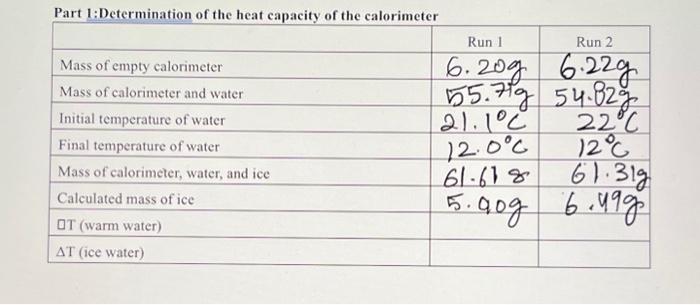 Part 1:Determination of the heat capacity of the calorimeter
Run 1 Run 2
Mass of empty calorimeter 6.20g 6.22g
Mass of calorimeter and water 55.71g 54.82g
Initial temperature of water 21.1°C 22°C
Final temperature of water 12.0°C 12°C
Mass of calorimeter, water, and ice 61.61g 61.31g
Calculated mass of ice 5.90g 6.49g
□T (warm water)
ΔT (ice water)